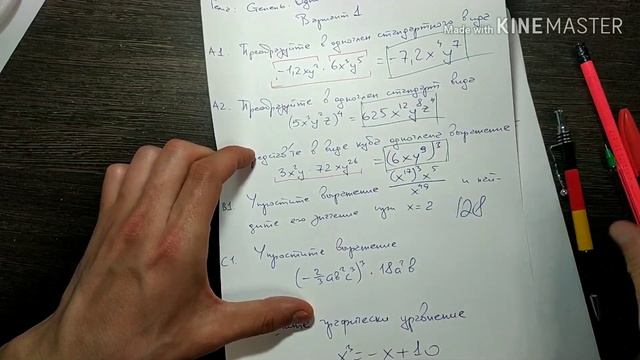 Вариант 1
Made with KINEMASTER
А1. Преобразуйте в одночлен стандартного вида
-1,2xy³ · 6x³y⁵ = -7,2x⁴y⁷
А2. Преобразуйте в одночлен стандарт вида
(5x³y²z)⁴ = 625x¹²y⁸z⁴
в виде куба одночлена выражение
3x²y · 72xy²⁶ = (6xy⁹)³
В1. Упростите выражение (x¹⁷)³x⁵ / x⁴⁹ и най-
дите его значение при x = 2 128
С1. Упростите выражение
(-2/3ab²c³)³ · 18a²b
графически уравнение
x³ = -x + 10